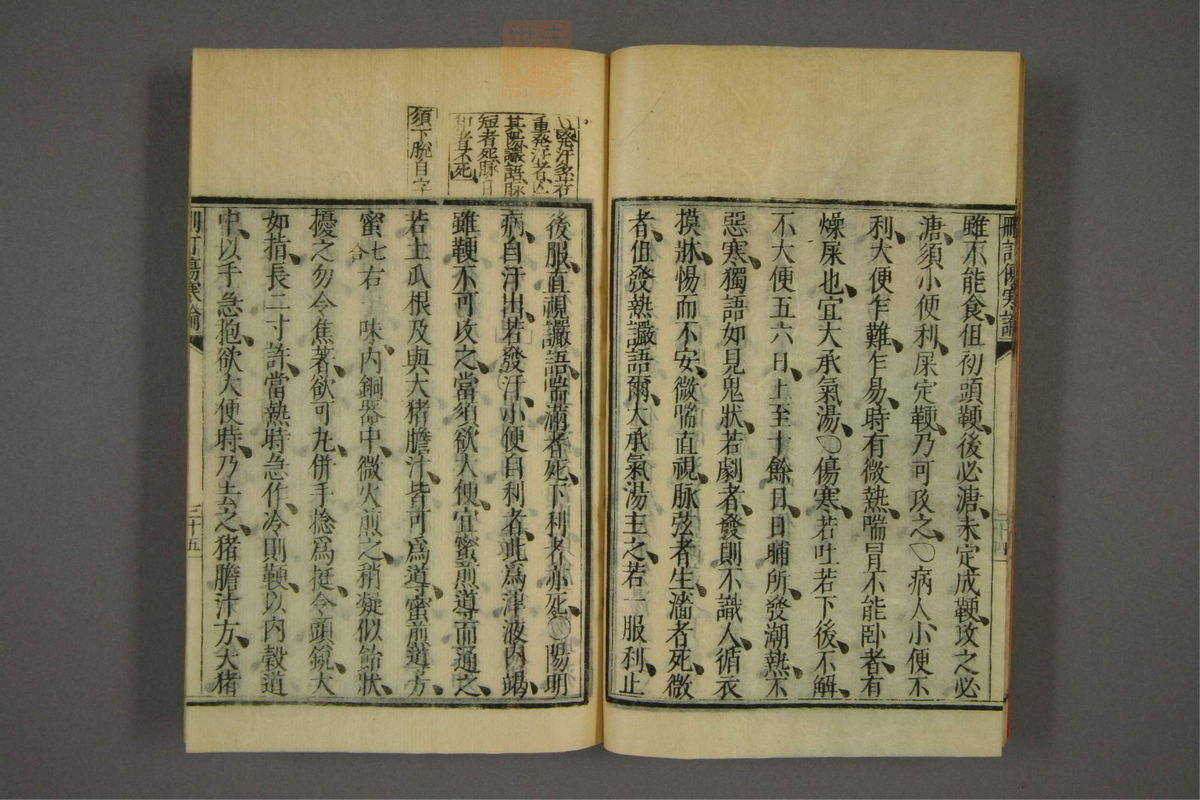 刪訂傷寒論
雖不能食、但初頭鞕、後必溏、未定成鞕、攻之必
溏、須小便利、屎定鞕、乃可攻之、○病人小便不
利、大便乍難、乍易、時有微熱、喘冒不能卧者、有
燥屎也、宜大承氣湯、○傷寒若吐若下後、不解、
不大便五六日、上至十餘日、日晡所、發潮熱、不
惡寒、獨語如見鬼狀、若劇者、發則不識人、循衣
摸牀、惕而不安、微喘直視、脈弦者生、濇者死、微
者、但發熱讝語爾、大承氣湯主之、若一服利、止
發汗多若
重發汗者亡
其陽讝語脈
短者死脈自
和者不死
須下脫自字
後服、直視讝語、喘滿者死、下利者亦死、○陽明
病、自汗出、若發汗、小便自利者、此爲津液内竭、
雖鞕不可攻之、當須欲大便、宜蜜煎導而通之、
若土瓜根及與大猪膽汁、皆可爲導、蜜煎導方、
蜜七合右一味、内銅器中、微火煎之、稍凝似飴狀、
擾之勿令焦著、欲可丸、併手捻爲挺、令頭銳、大
如指、長二寸許、當熱時急作、冷則鞕、以内穀道
中、以手急抱、欲大便時、乃去之、猪膽汁方、大猪
刪訂傷寒論
三十五